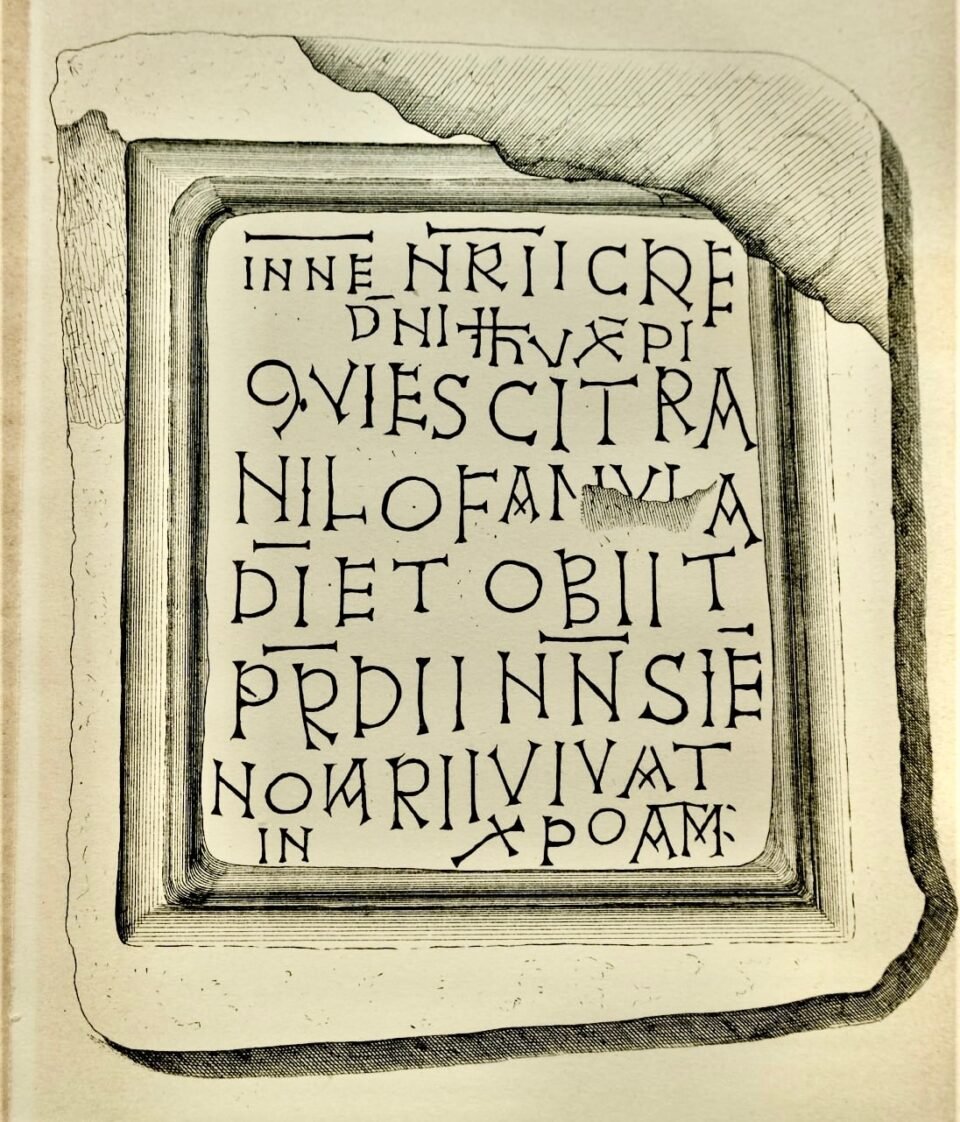 INNE NRIICRE
DNI IHVXPI
QVIESCITRA
NILOFAMVLA
DIET OBIIT
PRDII NNSIE
NOVARIIVIVAT
IN XPOAM: